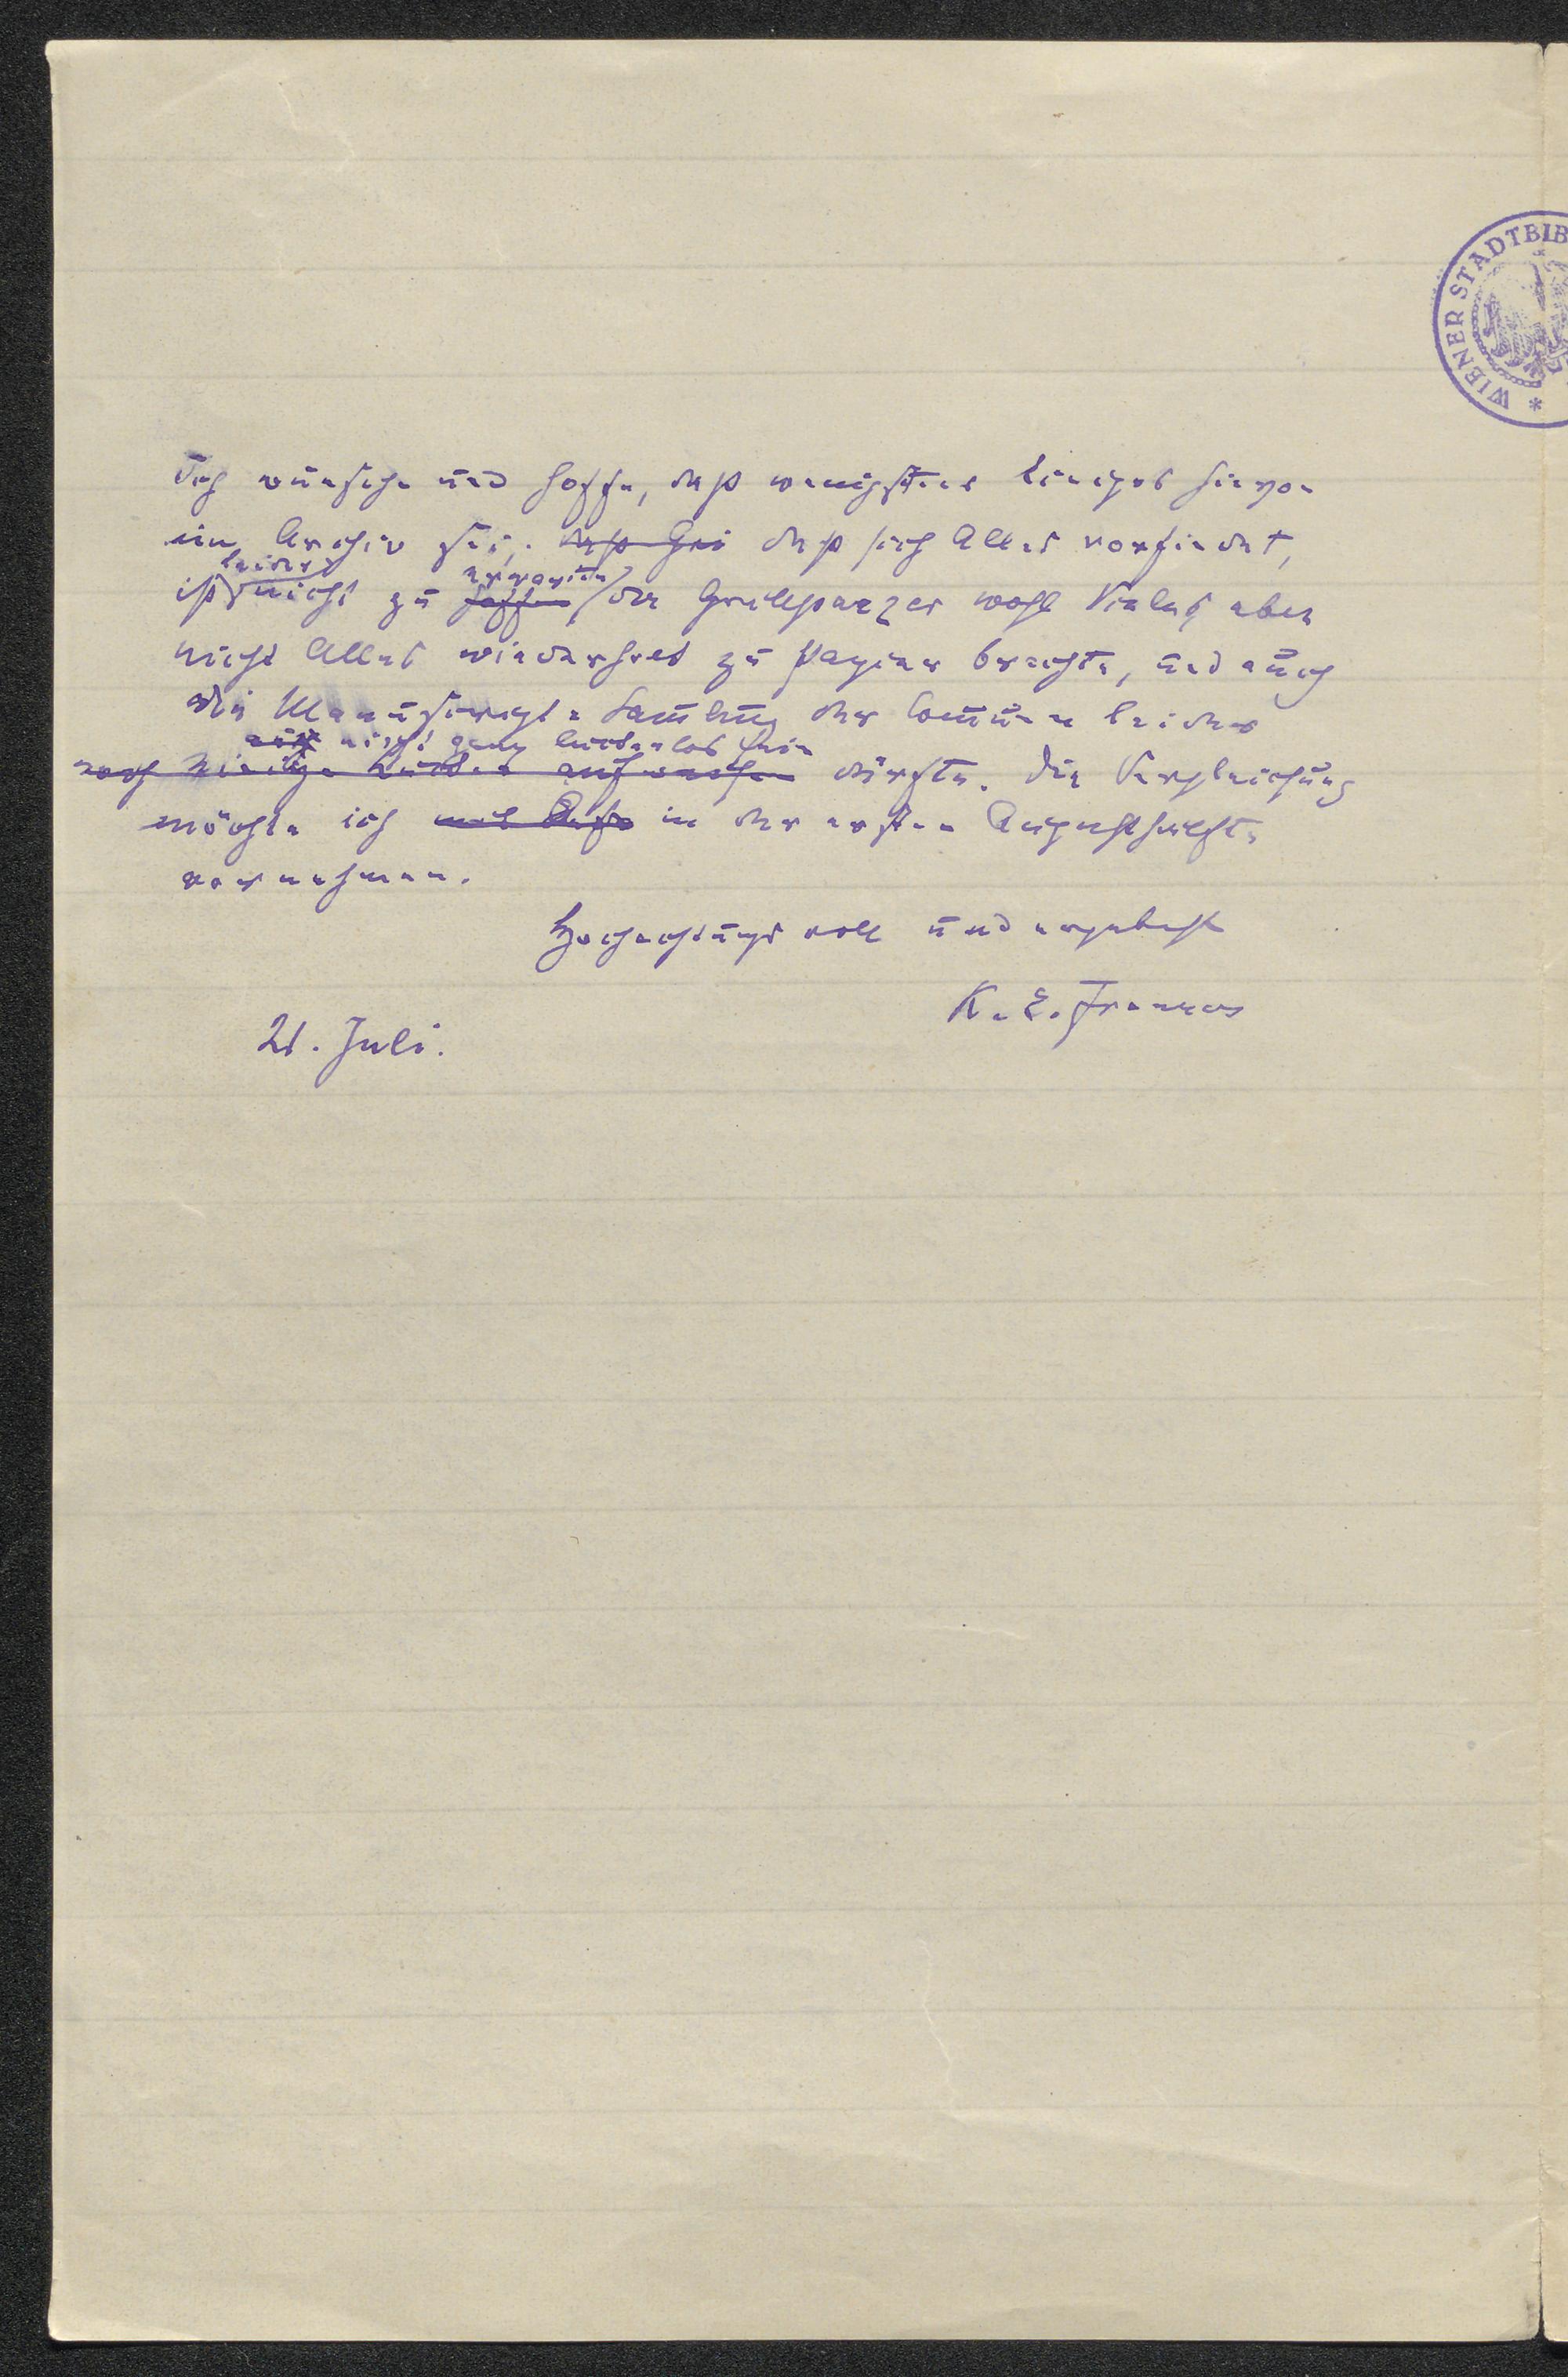 WIENER STADTBIB
Ich wünsche und hoffe, daß wenigstens Einiges hievon
im Archiv sei; daß Gri daß sich Alles vorfindet,
leider erwarten
ist nicht zu hoffen, da Grillparzer wohl Vieles aber
nicht Alles wiederholt zu Papier brachte, und auch
die Manuscripte Sammlung der Commune leider
nicht ganz lückenlos sein
noch einige Lücken aufweisen dürfte. Die Vergleichung
möchte ich in der ersten Augusthälfte
vornehmen.
Hochachtungsvoll und ergebenst
K. E. Franzos
21. Juli.